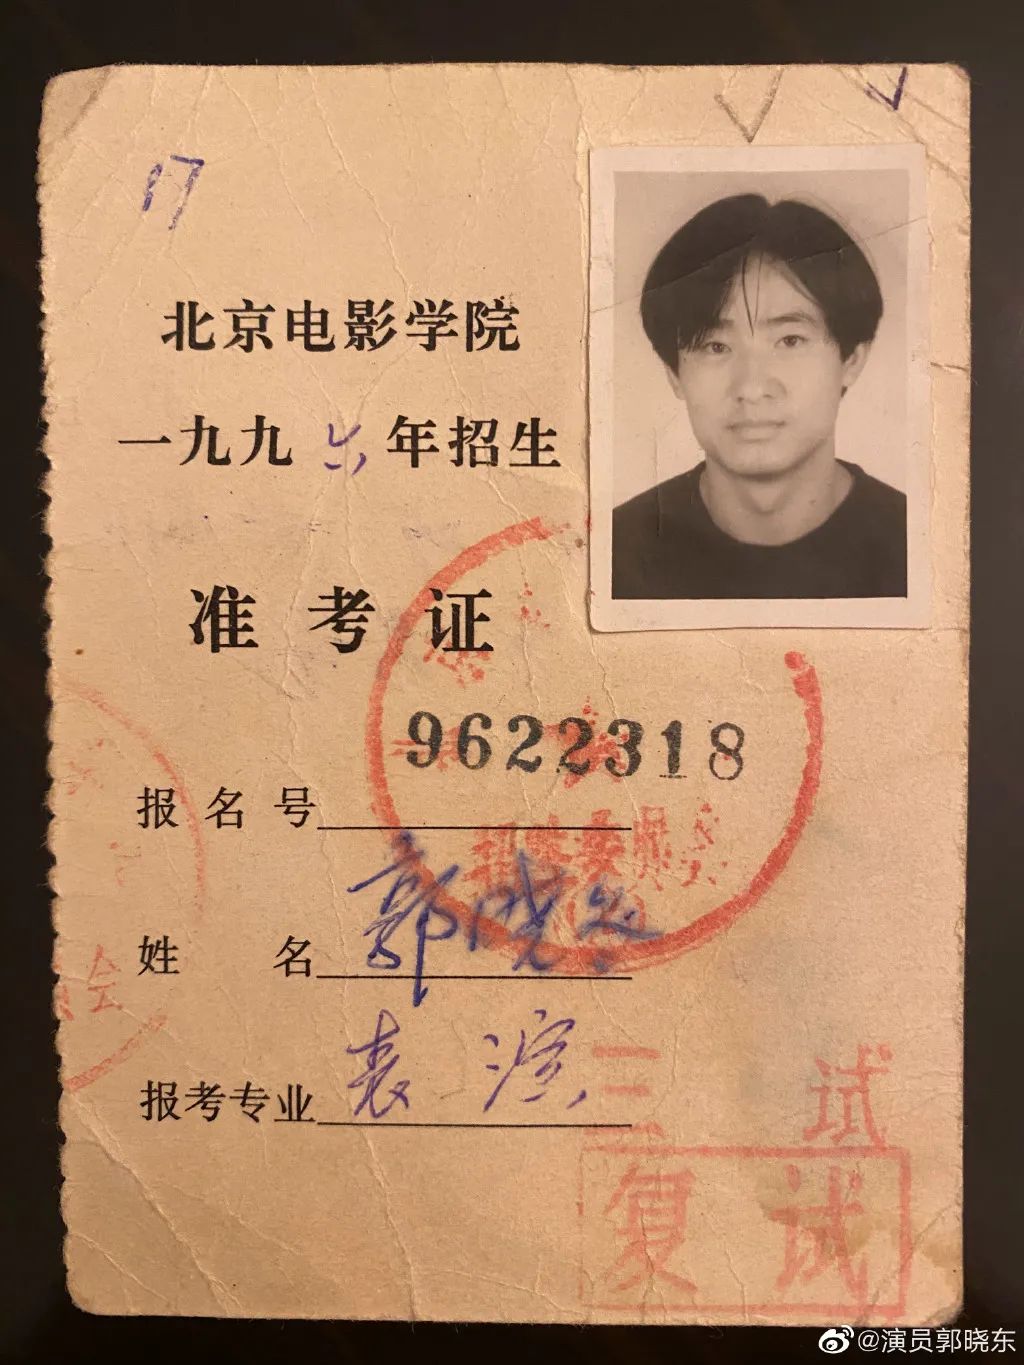 17
北京电影学院
一九九六年招生
准考证
9622318
报名号
姓名 郭晓东
报考专业 表演
三试
复试
会
@演员郭晓东